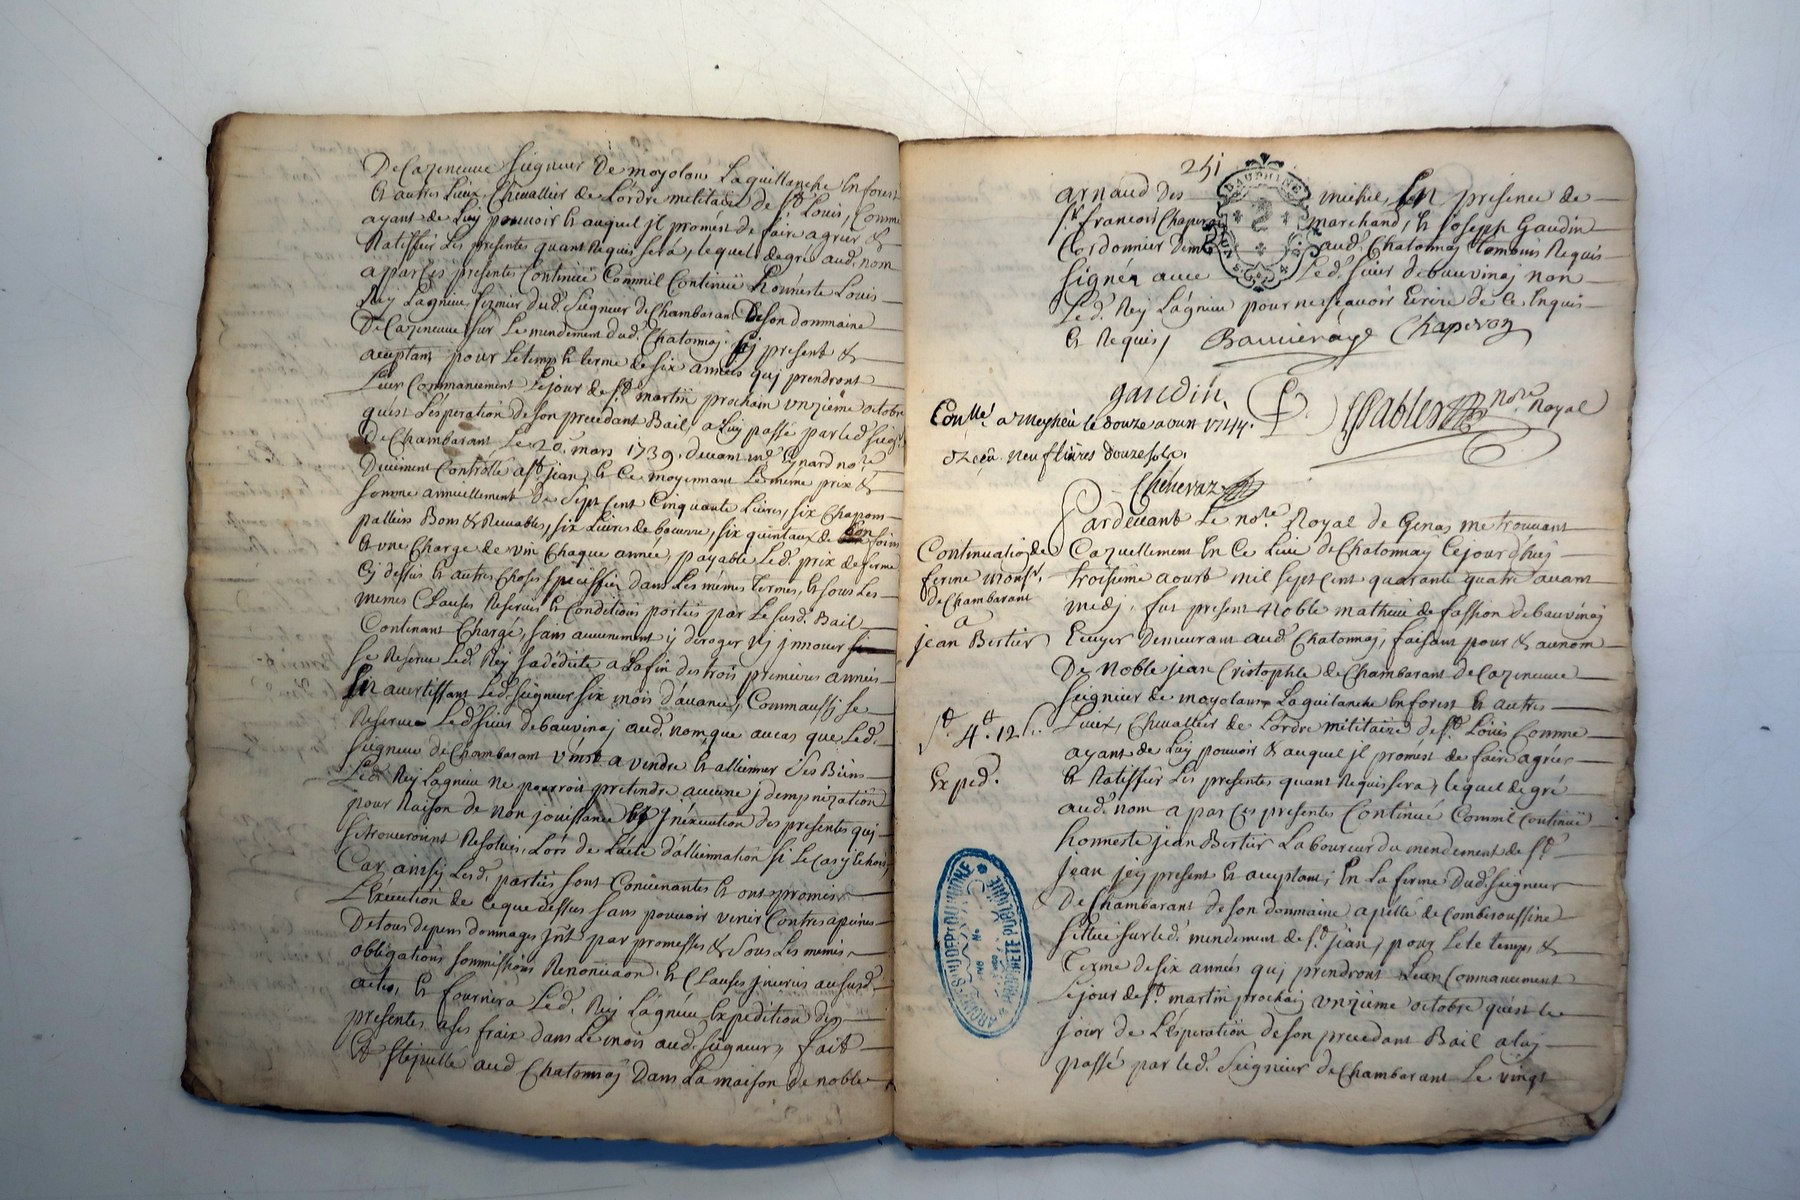 De Cazeneuve Seigneur De moyolane Laquillanche En forest
Et autres Lieux, Chevallier de L'ordre militaire de St. Louis, Comme
ayant de Luy pouvoir Et auquel jl promést de faire agréér &
Ratiffiér Les presentes quant Requis sera, lequel de gré aud. nom
a par Ces presentes Continüé Comm'il Continüe Honneste Louis
Rey Lagnieu fermier dud. Seigneur de Chambarant De son dommaine
De Cazeneuve sur Le mendement dud. Chatonnay jcy present &
acceptant pour Le temps & terme de six annéés quj prendront
Leur Commancement Le jour de St. martin prochain vnzième octobre
qu'est L'ésperation de son precedant Bail a Luy passé par led. Seigr.
De Chambarant Le 20. mars 1739. devant me. Eynard nore.
Düement Contrôllé a St. jean, Et Ce moyennant Le même prix &
somme annuellement de Sept Cent Cinquante Livres, six Chapons
paillers Bons & Recevables, six Livres de beurre, six quintaux de foins
Et vne Charge de vin Chaque année, payable Led. prix de ferme
Cy dessus & autres Choses speciffiéz dans Les mêmes termes, & sous Les
mêmes Clauses Reserves & Conditions portéés par Le susd. Bail
Contenant Chargé, sans aucunement y déroger nj jnnover
se Reserve Led. Rey sa dédiete a La fin des trois premieres annéés
En avertissant Led. Seigneur six mois d'avance, Comm'aussj se
Reserve Led. sieur de bauvinaj aud. nom, que au cas que Led.
Seigneur de Chambarant vinst a vendre & alliénner ses Biens
Led. Rey Lagnieu ne pourroit pretendre aucune jdempnization
pour Raison de non jouissance & jnéxecution des presentes quj
se trouveront Resolües, Lors de L'acte d'alliénnation si Le Cas y êchoit,
Car ainsÿ Lesd. parties sont Convenantes & ont promis
L'éxécution de Ce que dessus sans pouvoir venir Contre a peines
De tous depens dommages jnt. par promesses & sous Les mêmes
obligations soummissions Renonciaon. & Clauses jnserées au susd.
acte, Et fournira Led. Rey Lagnieu Expedition des
presentes a ses fraix dans Le mois aud. Seigneur, fait
Et stipullé aud. Chatonnay Dans La maison de noble
251
DAUPHINE
arnaud Des michié, En presence de
Sr. francois Chaperon marchand, & joseph Gaudin
Cordonnier Dem aud. Chatonnay temoins Requis
Signéz avec Led. sieur de bauvinaj non
Led. Rey Lagnieu pour ne sçavoir Ecrire de Ce Enquis
Et Requis,
Bauvinaÿ Chaperon
gaudin
Pablet nore. Royal
Conlle. a Meyrieu le douze aoust 1744.
Reçu neuf livres douze sols.
Chenevaz
Pardevant Le nore. Royal de Genas me trouvant
Continuation de
ferme Monsr.
De Chambarant
a
jean Bertier
Cazuellement En Ce Lieu de Chatonnay Cejourd'huy
troisième aoust mil sept Cent quarante quatre avant
midj, fut present Noble mathieu de fassion de bauvinaj
Ecuyer Demeurant aud. Chatonnay, faisant pour & au nom
De Noble jean Cristophle de Chambarant de Cazeneuve
Seigneur de moyolane Laquilanche En forest & autres
Lieux, Chevallier de L'ordre militaire de St. Loüis Comme
ayant de Luy pouvoir & auquel jl promést de faire agréér
Et Ratiffiér Les presentes quant Requis sera, lequel de gré
aud. nom a par Ces presentes Continüé Comm'il Continüe
4tt. 12 s.
Exped.
honneste jean Bertier Laboureur du mendement de St.
jean jcy present Et acceptant, En La ferme Dud. Seigneur
De Chambarant de son dommaine apellé de Comberoussine
sittué sur led. mendement de St. jean, pour Le temps &
terme de six annéés quj prendront Leur Commancement
Le jour de St. martin prochain vnzième octobre qu'est le
jour de L'ésperation de son precedant Bail a luy
passé par led. Seigneur de Chambarant Le vingt
ARCHIVES DU DEPT. DU RHONE
PROPRIETE PUBLIQUE